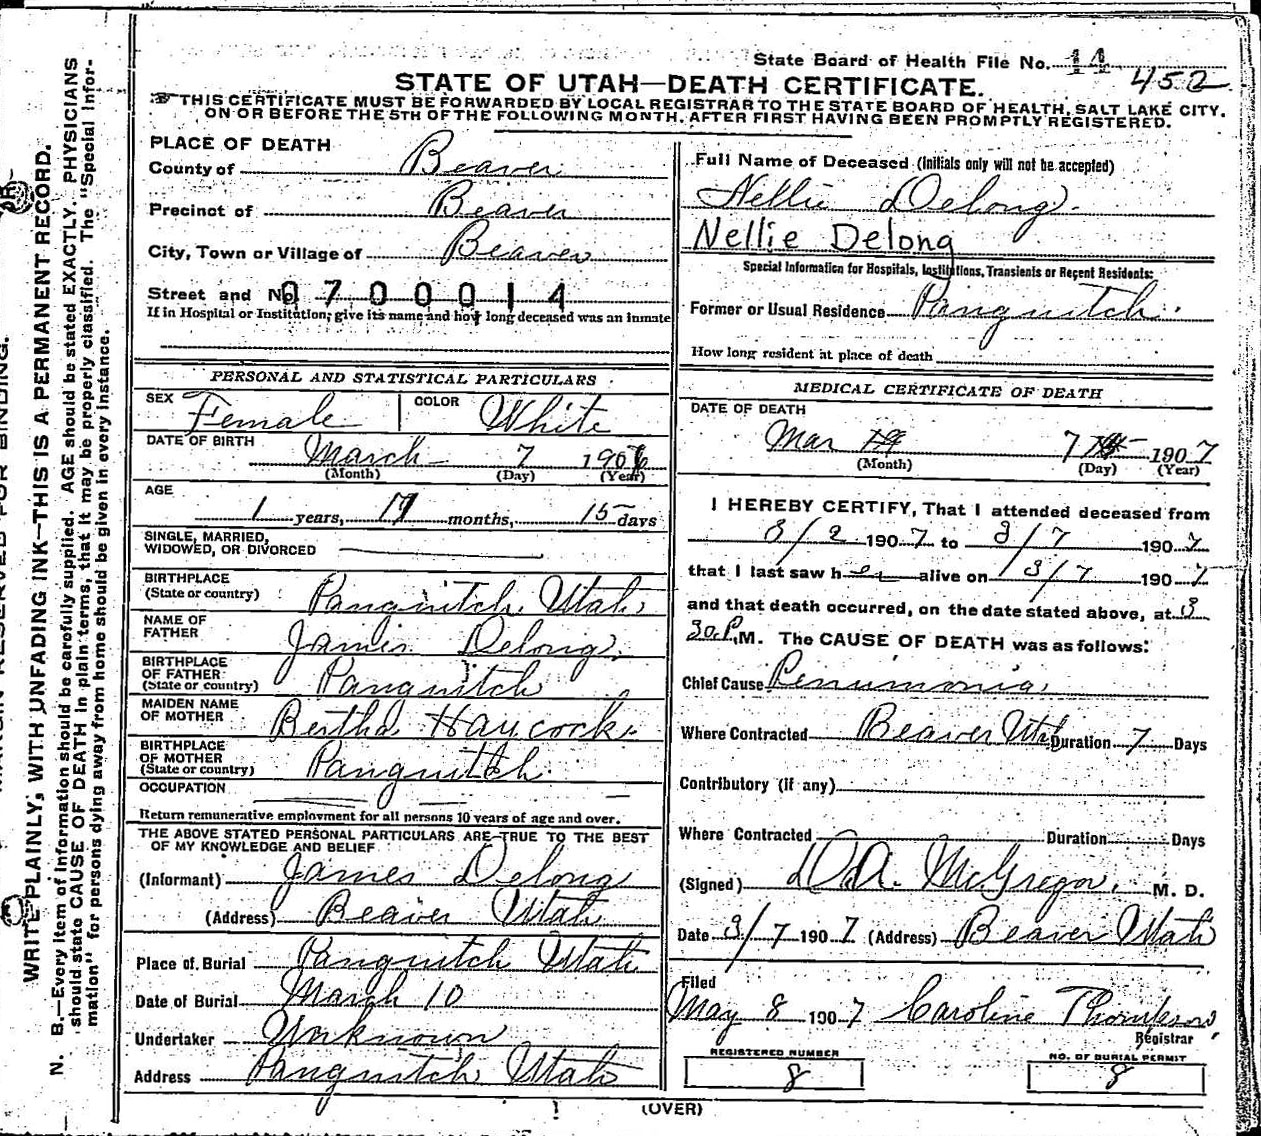 State Board of Health File No. 14
452
STATE OF UTAH—DEATH CERTIFICATE.
THIS CERTIFICATE MUST BE FORWARDED BY LOCAL REGISTRAR TO THE STATE BOARD OF HEALTH, SALT LAKE CITY.
ON OR BEFORE THE 5TH OF THE FOLLOWING MONTH. AFTER FIRST HAVING BEEN PROMPTLY REGISTERED.
PLACE OF DEATH
County of Beaver
Precinct of Beaver
City, Town or Village of Beaver
Street and No. 0700014
If in Hospital or Institution, give its name and how long deceased was an inmate
PERSONAL AND STATISTICAL PARTICULARS
SEX Female COLOR White
DATE OF BIRTH
March 7 190
(Month) (Day) (Year)
AGE
1 years, months, 15 days
SINGLE, MARRIED,
WIDOWED, OR DIVORCED
BIRTHPLACE
(State or country) Panguitch Utah
NAME OF
FATHER James Delong
BIRTHPLACE
OF FATHER
(State or country) Panguitch
MAIDEN NAME
OF MOTHER Bertha Haycock
BIRTHPLACE
OF MOTHER
(State or country) Panguitch
OCCUPATION
Return remunerative employment for all persons 10 years of age and over.
THE ABOVE STATED PERSONAL PARTICULARS ARE TRUE TO THE BEST
OF MY KNOWLEDGE AND BELIEF
(Informant) James Delong
(Address) Beaver Utah
Place of Burial Panguitch Utah
Date of Burial March 10
Undertaker Unknown
Address Panguitch Utah
Full Name of Deceased (Initials only will not be accepted)
Nellie Delong.
Nellie Delong
Special Information for Hospitals, Institutions, Transients or Recent Residents:
Former or Usual Residence Panguitch.
How long resident at place of death
MEDICAL CERTIFICATE OF DEATH
DATE OF DEATH
Mar 7 1907
(Month) (Day) (Year)
I HEREBY CERTIFY, That I attended deceased from
3/2 1907 to 3/7 1907
that I last saw her alive on 3/7 1907
and that death occurred, on the date stated above, at 3
30 P.M. The CAUSE OF DEATH was as follows:
Chief Cause Penumonia
Where Contracted Beaver Utah Duration 7 Days
Contributory (if any)
Where Contracted Duration Days
(Signed) D.A. McGregor. M. D.
Date 3/7 1907 (Address) Beaver Utah
Filed
May 8 1907 Caroline Thompson
Registrar
REGISTERED NUMBER
8
NO. OF BURIAL PERMIT
8
(OVER)
MARGIN RESERVED FOR BINDING.
WRITE PLAINLY, WITH UNFADING INK—THIS IS A PERMANENT RECORD.
N. B.—Every item of information should be carefully supplied. AGE should be stated EXACTLY. PHYSICIANS
should state CAUSE OF DEATH in plain terms, that it may be properly classified. The "Special Infor-
mation" for persons dying away from home should be given in every instance.